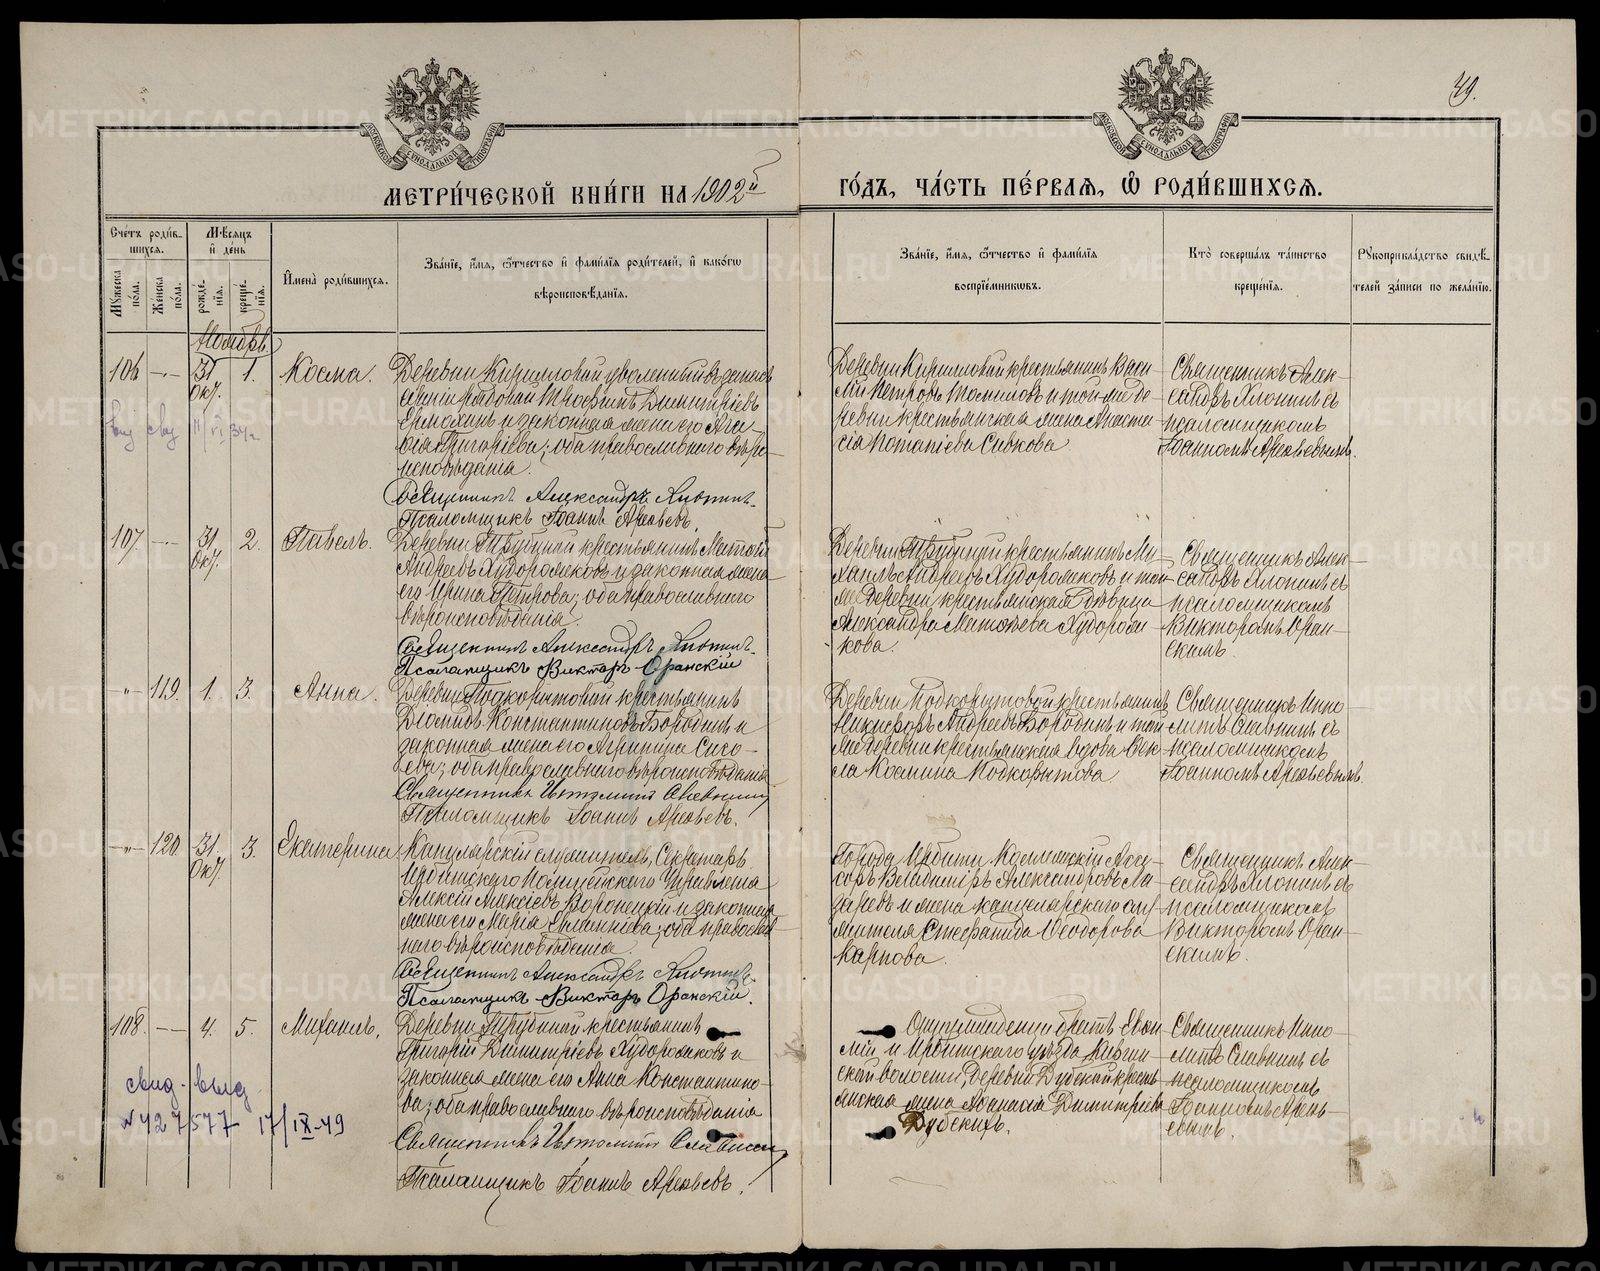 49.
МОСКОВСКОЙ СѴНОДАЛЬНОЙ ТИПОГРАФІИ
МОСКОВСКОЙ СѴНОДАЛЬНОЙ ТИПОГРАФІИ
МЕТРИ́ЧЕСКОЙ КНИ́ГИ НА 1902й
ГО́ДЪ, ЧА́СТЬ ПЕ́РВАѦ, Ѡ҆ РОДИ́ВШИХСѦ.
Сче́тъ роди́в-
шихсѧ.
Мѣ́сѧцъ
и҆ де́нь
И҆мена̀ роди́вшихсѧ.
Зва́нїе, и҆́мѧ, ѻ҆́тчество и҆ фами́лїѧ роди́телей, и҆ како́гѡ
вѣроисповѣ́данїѧ.
Му́жеска по́ла.
Же́нска по́ла.
рожде́-нїѧ.
креще́-нїѧ.
Зва́нїе, и҆́мѧ, ѻ҆́тчество и҆ фами́лїѧ
воспрїе́мникѡвъ.
Кто̀ соверша́лъ та́инство
креще́нїѧ.
Рꙋкоприкла́дство свидѣ́-
телей за́писи по жела́нїю.
Ноябрь
106 —"— 31 Окт. 1. Косма.
Деревни Кирилловой уволенный въ запасъ
армии рядовой Трофимъ Димитріевъ
Ермохинъ и законная жена его Ага-
фія Григоріева; оба православнаго вѣро-
исповѣданія.
Священникъ Александръ Хлопинъ.
Псаломщикъ Іоаннъ Арефьевъ.
Деревни Кирилловой крестьянинъ Васи-
лій Петровъ Томиловъ и той-же де-
ревни крестьянская жена Анаста-
сія Потапіева Савкова
Священникъ Алек-
сандръ Хлопинъ съ
псаломщикомъ
Іоанномъ Арефьевымъ.
107. —"— 31 Окт. 2. Павелъ.
Деревни Трубиной крестьянинъ Матѳей
Андреевъ Худорожковъ и законная жена
его Ирина Петрова; оба православнаго
вѣроисповѣданія.
Священникъ Александръ Хлопинъ.
Псаломщикъ Викторъ Оранскій
Деревни Трубиной крестьянинъ Ми-
хаилъ Андреевъ Худорожковъ и той
же деревни крестьянская дѣвица
Александра Матѳеева Худорож-
кова.
Священникъ Алек-
сандръ Хлопинъ съ
псаломщикомъ
Викторомъ Оран-
скимъ.
—"— 119. 1. 3. Анна.
Деревни Подкорытовой крестьянинъ
Діомидъ Константиновъ Бородинъ и
законная жена его Агриппина Сисо-
ева; оба православнаго вѣроисповѣданія
Священникъ
Псаломщикъ Іоаннъ Арефьевъ.
Деревни Подкорытовой крестьянинъ
Никифоръ Андреевъ Бородинъ и той
же деревни крестьянская вдова Ѳек-
ла Космина Подкорытова
Священникъ Иппо-
литъ Славнинъ съ
псаломщикомъ
Іоанномъ Арефьевымъ.
—"— 120. 31. Окт. 3. Екатерина
Канцелярскій служитель, Секретарь
Ирбитскаго Полицейскаго Управленія
Алексій Алексіевъ Воронецкій и законная
жена его Марія; оба православ-
наго вѣроисповѣданія
Священникъ Александръ Хлопинъ.
Псаломщикъ Викторъ Оранскій.
Города Ирбити Коллежскій Ассе-
соръ Владиміръ Александровъ Ла-
заревъ и жена канцелярскаго слу-
жителя Стефанида Ѳеодорова
Карпова.
Священникъ Алек-
сандръ Хлопинъ съ
псаломщикомъ
Викторомъ Оран-
скимъ.
108. —— 4. 5. Михаилъ.
Деревни Трубиной крестьянинъ
Григорій Димитріевъ Худорожковъ и
законная жена его Анна Константино-
ва; оба православнаго вѣроисповѣданія
Священникъ
Псаломщикъ Іоаннъ Арефьевъ.
братъ Евѳи-
мій и Ирбитскаго уѣзда
ской волости, деревни Дубской кресть-
янская жена Аѳанасія Димитріева
Дубскихъ.
Священникъ Иппо-
литъ Славнинъ съ
псаломщикомъ
Іоанномъ Арефь-
евымъ.
свид-выд
№427577 17/IX-49
METRIKI.GASO-URAL.RU